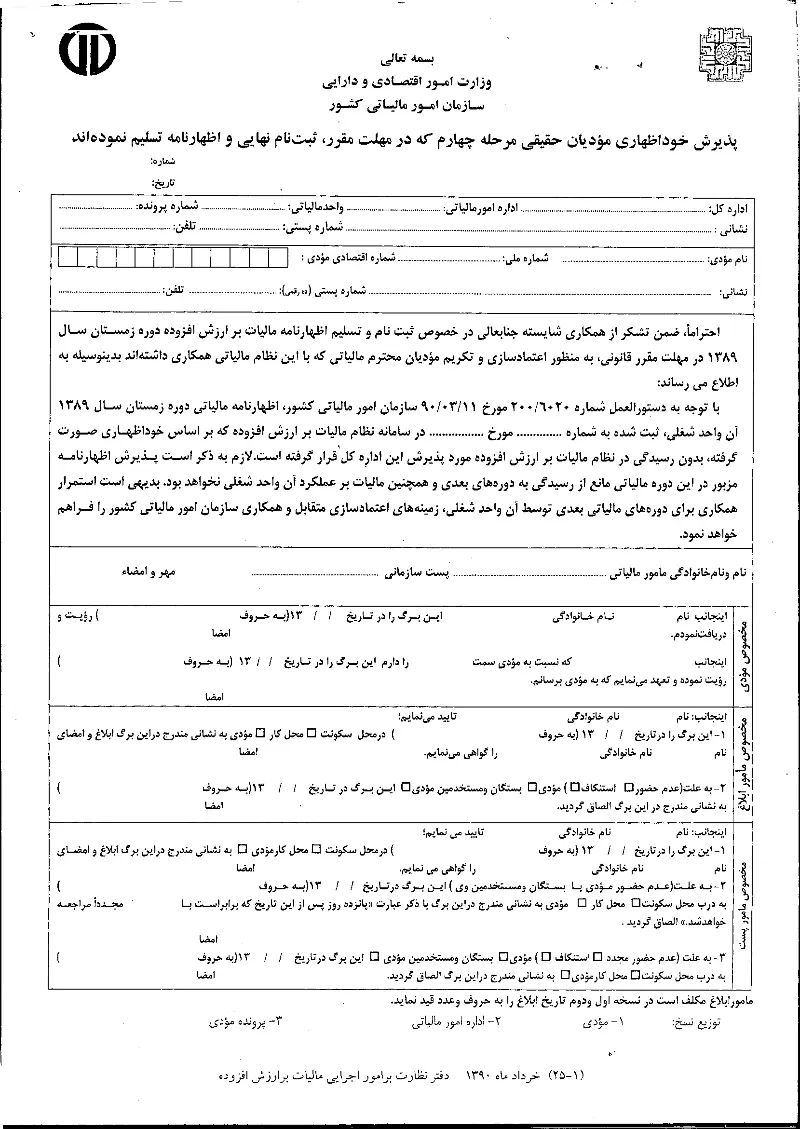 بسمه تعالی
وزارت امور اقتصادی و دارایی
سازمان امور مالیاتی کشور
پذیرش خوداظهاری مؤدیان حقیقی مرحله چهارم که در مهلت مقرر، ثبت‌نام نهایی و اظهارنامه تسلیم نموده‌اند
شماره:
تاریخ:
اداره کل: ........ اداره امورمالیاتی: ........ واحدمالیاتی: ........ شماره پرونده: ........
نشانی : ........ شماره پستی: ........ تلفن: ........
نام مؤدی: ........ شماره ملی: ........ شماره اقتصادی مؤدی :
نشانی: ........ شماره پستی (۱۰ رقمی): ........ تلفن: ........
احتراماً، ضمن تشکر از همکاری شایسته جنابعالی در خصوص ثبت نام و تسلیم اظهارنامه مالیات بر ارزش افزوده دوره زمستان سال
۱۳۸۹ در مهلت مقرر قانونی، به منظور اعتمادسازی و تکریم مؤدیان محترم مالیاتی که با این نظام مالیاتی همکاری داشته‌اند بدینوسیله به
اطلاع می رساند:
با توجه به دستورالعمل شماره ۲۰۰/۶۰۲۰ مورخ ۹۰/۰۳/۱۱ سازمان امور مالیاتی کشور، اظهارنامه مالیاتی دوره زمستان سال ۱۳۸۹
آن واحد شغلی، ثبت شده به شماره ............. مورخ ................ در سامانه نظام مالیات بر ارزش افزوده که بر اساس خوداظهاری صورت
گرفته، بدون رسیدگی در نظام مالیات بر ارزش افزوده مورد پذیرش این اداره کل قرار گرفته است.لازم به ذکر است پذیرش اظهارنامه
مزبور در این دوره مالیاتی مانع از رسیدگی به دوره‌های بعدی و همچنین مالیات بر عملکرد آن واحد شغلی نخواهد بود. بدیهی است استمرار
همکاری برای دوره‌های مالیاتی بعدی توسط آن واحد شغلی، زمینه‌های اعتمادسازی متقابل و همکاری سازمان امور مالیاتی کشور را فراهم
خواهد نمود.
نام ونام‌خانوادگی مامور مالیاتی ........ پست سازمانی ........ مهر و امضاء
مخصوص مؤدی
اینجانب نام نام خانوادگی این برگ را در تاریخ / / ۱۳(به حروف ) رؤیت و
دریافت‌نمودم. امضا
اینجانب که نسبت به مؤدی سمت را دارم این برگ را در تاریخ / / ۱۳ (به حروف )
رؤیت نموده و تعهد می‌نمایم که به مؤدی برسانم.
امضا
مخصوص مامور ابلاغ
اینجانب: نام نام خانوادگی تایید می‌نمایم؛
۱-این برگ را درتاریخ / / ۱۳ (به حروف ) درمحل سکونت □ محل کار □ مؤدی به نشانی مندرج دراین برگ ابلاغ و امضای
نام نام خانوادگی را گواهی می‌نمایم. امضا
۲-به علت(عدم حضور□ استنکاف □) مؤدی□ بستگان ومستخدمین مؤدی□ این برگ در تاریخ / / ۱۳(به حروف )
به نشانی مندرج در این برگ الصاق گردید. امضا
مخصوص مامور پست
اینجانب: نام نام خانوادگی تایید می نمایم؛
۱-این برگ را درتاریخ / / ۱۳ (به حروف ) درمحل سکونت □ محل کارمؤدی □ به نشانی مندرج دراین برگ ابلاغ و امضای
نام نام خانوادگی را گواهی می نمایم. امضا
۲-به علت(عدم حضور مؤدی یا بستگان ومستخدمین وی ) این برگ درتاریخ / / ۱۳(به حروف )
به درب محل سکونت□ محل کار □ مؤدی به نشانی مندرج دراین برگ با ذکر عبارت «پانزده روز پس از این تاریخ که برابراست با مجدداً مراجعه
خواهدشد.» الصاق گردید .
امضا
۳-به علت (عدم حضور مجدد □ استنکاف □) مؤدی□ بستگان ومستخدمین مؤدی □ این برگ درتاریخ / / ۱۳(به حروف )
به درب محل سکونت□ محل کارمؤدی□ به نشانی مندرج دراین برگ الصاق گردید. امضا
مامورابلاغ مکلف است در نسخه اول ودوم تاریخ ابلاغ را به حروف وعدد قید نماید.
توزیع نسخ: ۱- مؤدی ۲- اداره امور مالیاتی ۳- پرونده مؤدی
(۲۵-۱) خرداد ماه ۱۳۹۰ دفتر نظارت برامور اجرایی مالیات برارزش افزوده